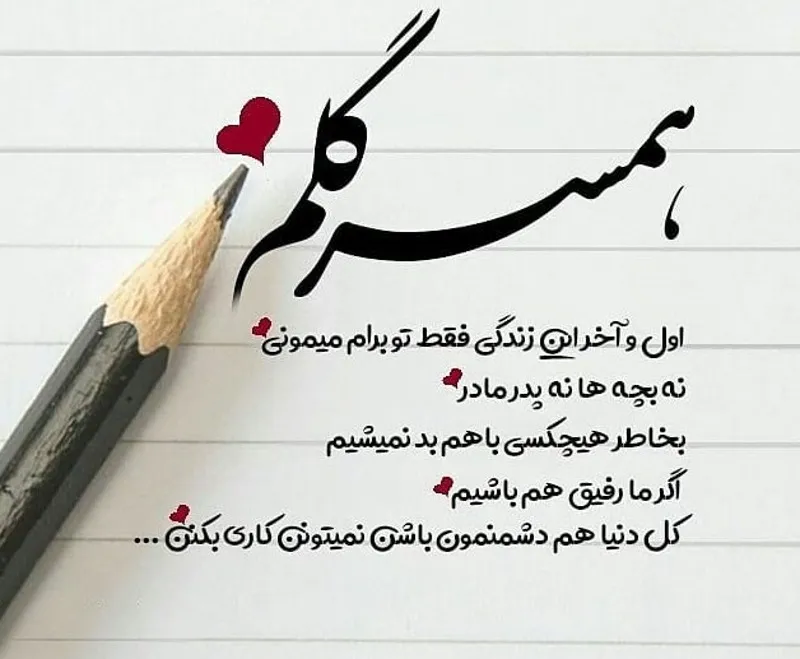 همسر گلم
اول و آخر این زندگی فقط تو برام میمونی
نه بچه ها نه پدر مادر
بخاطر هیچکسی با هم بد نمیشیم
اگر ما رفیق هم باشیم
کل دنیا هم دشمنمون باشن نمیتونن کاری بکنن ...